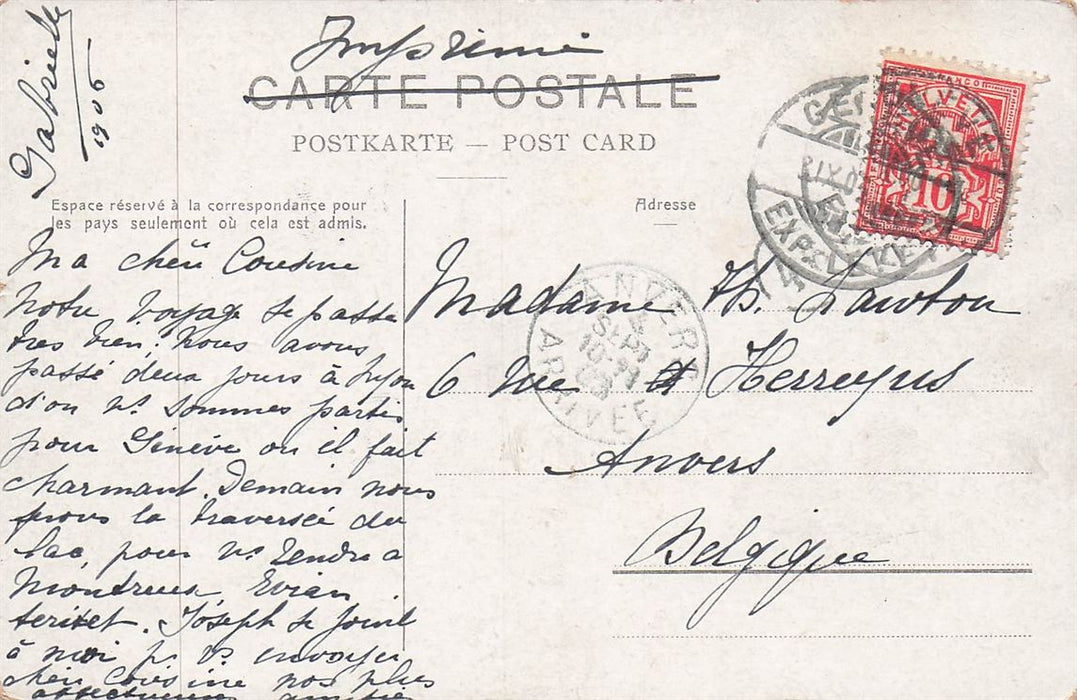 Gabrielle
1905
Imprimé
CARTE POSTALE
POSTKARTE — POST CARD
Espace réservé à la correspondance pour
les pays seulement où cela est admis.
Adresse
FRANCO
HELVETIA
10
EXP. LETT
ANVERS
SEPT
ARRIVEE
Madame Th. Lawton
6 Rue Herreyns
Anvers
Belgique
Ma chère Cousine
Notre voyage se passe
très bien. Nous avons
passé deux jours à Lyon
d'où ns. sommes partis
pour Génève où il fait
charmant. Demain nous
ferons la traversée du
lac, pour ns. rendre a
Montreux Evian
territet. Joseph se joint
à moi p. vs. envoyer
chère cousine nos plus
affectueuses amitiés